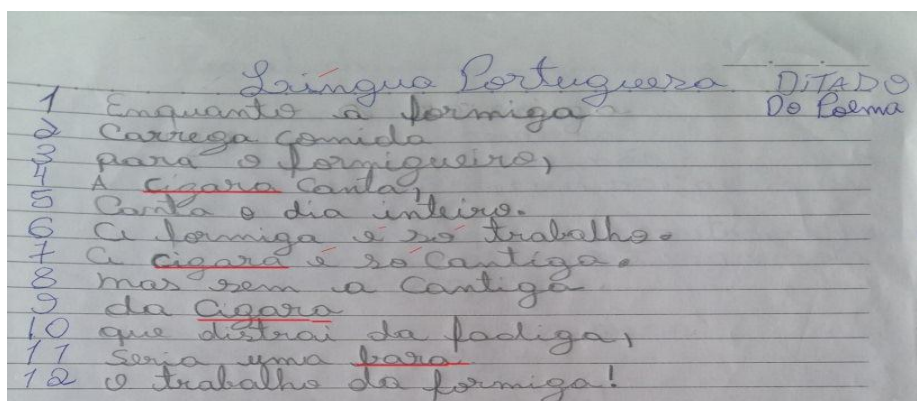 Língua Portuguesa DITADO
Do Poema
1 Enquanto a formiga
2 Carrega comida
3 para o formigueiro,
4 A cigara Canta,
5 Canta o dia inteiro.
6 A formiga é só trabalho.
7 A cigara é só Cantiga.
8 mas sem a Cantiga
9 da Cigara
10 que distrai da fadiga,
11 Seria uma bara
12 o trabalho da formiga!